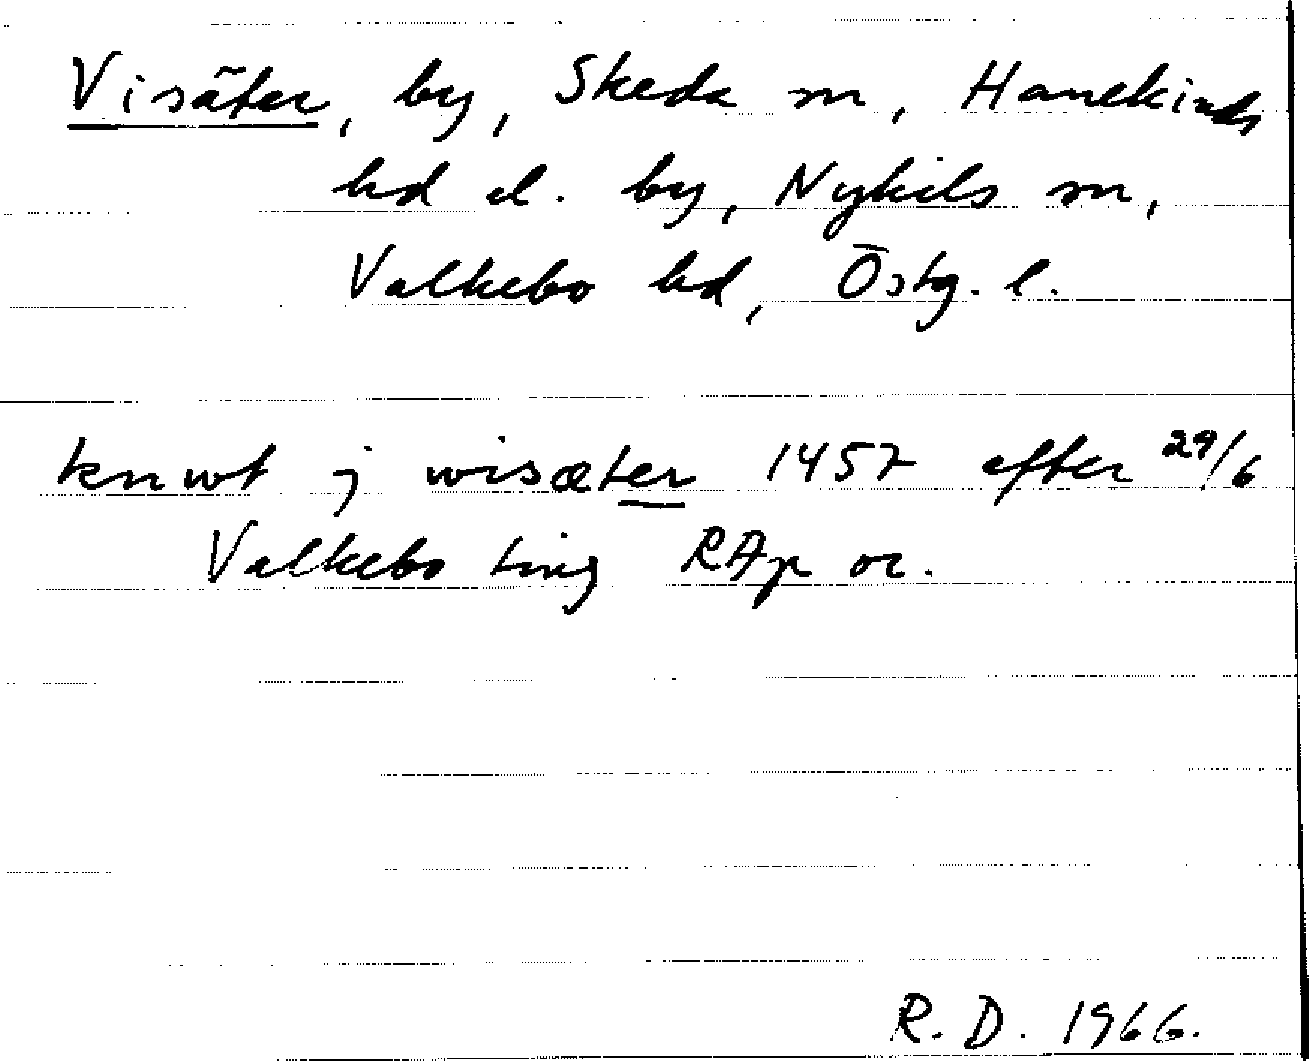 Visäter, by, Skeda sn, Hanekinds
hd el. by, Nykils sn,
Valkebo hd, Östg. l.
knwt j wisæter 1457 efter 29/6
Valkebo ting RAp or.
R. D. 1966.